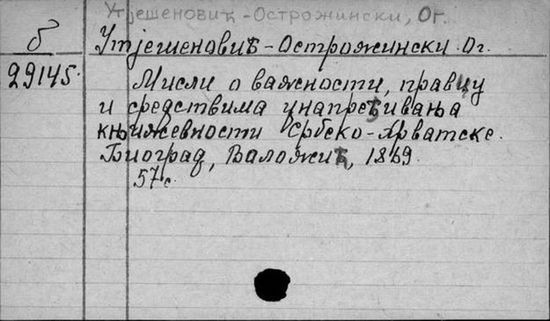 Утјешеновић-Острожински, Ог.
б
Утјешеновић-Острожински Ог.
29145.
Мисли о важности, правцу
и средствима унапређивања
књижевности Србско-Хрватске.
Биоград, Валожић, 1869.
57 с.